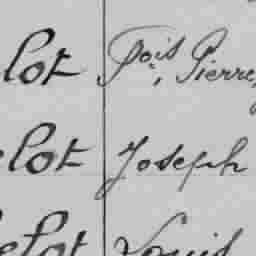 lot Fçois Pierre,
elot Joseph
elot Louis